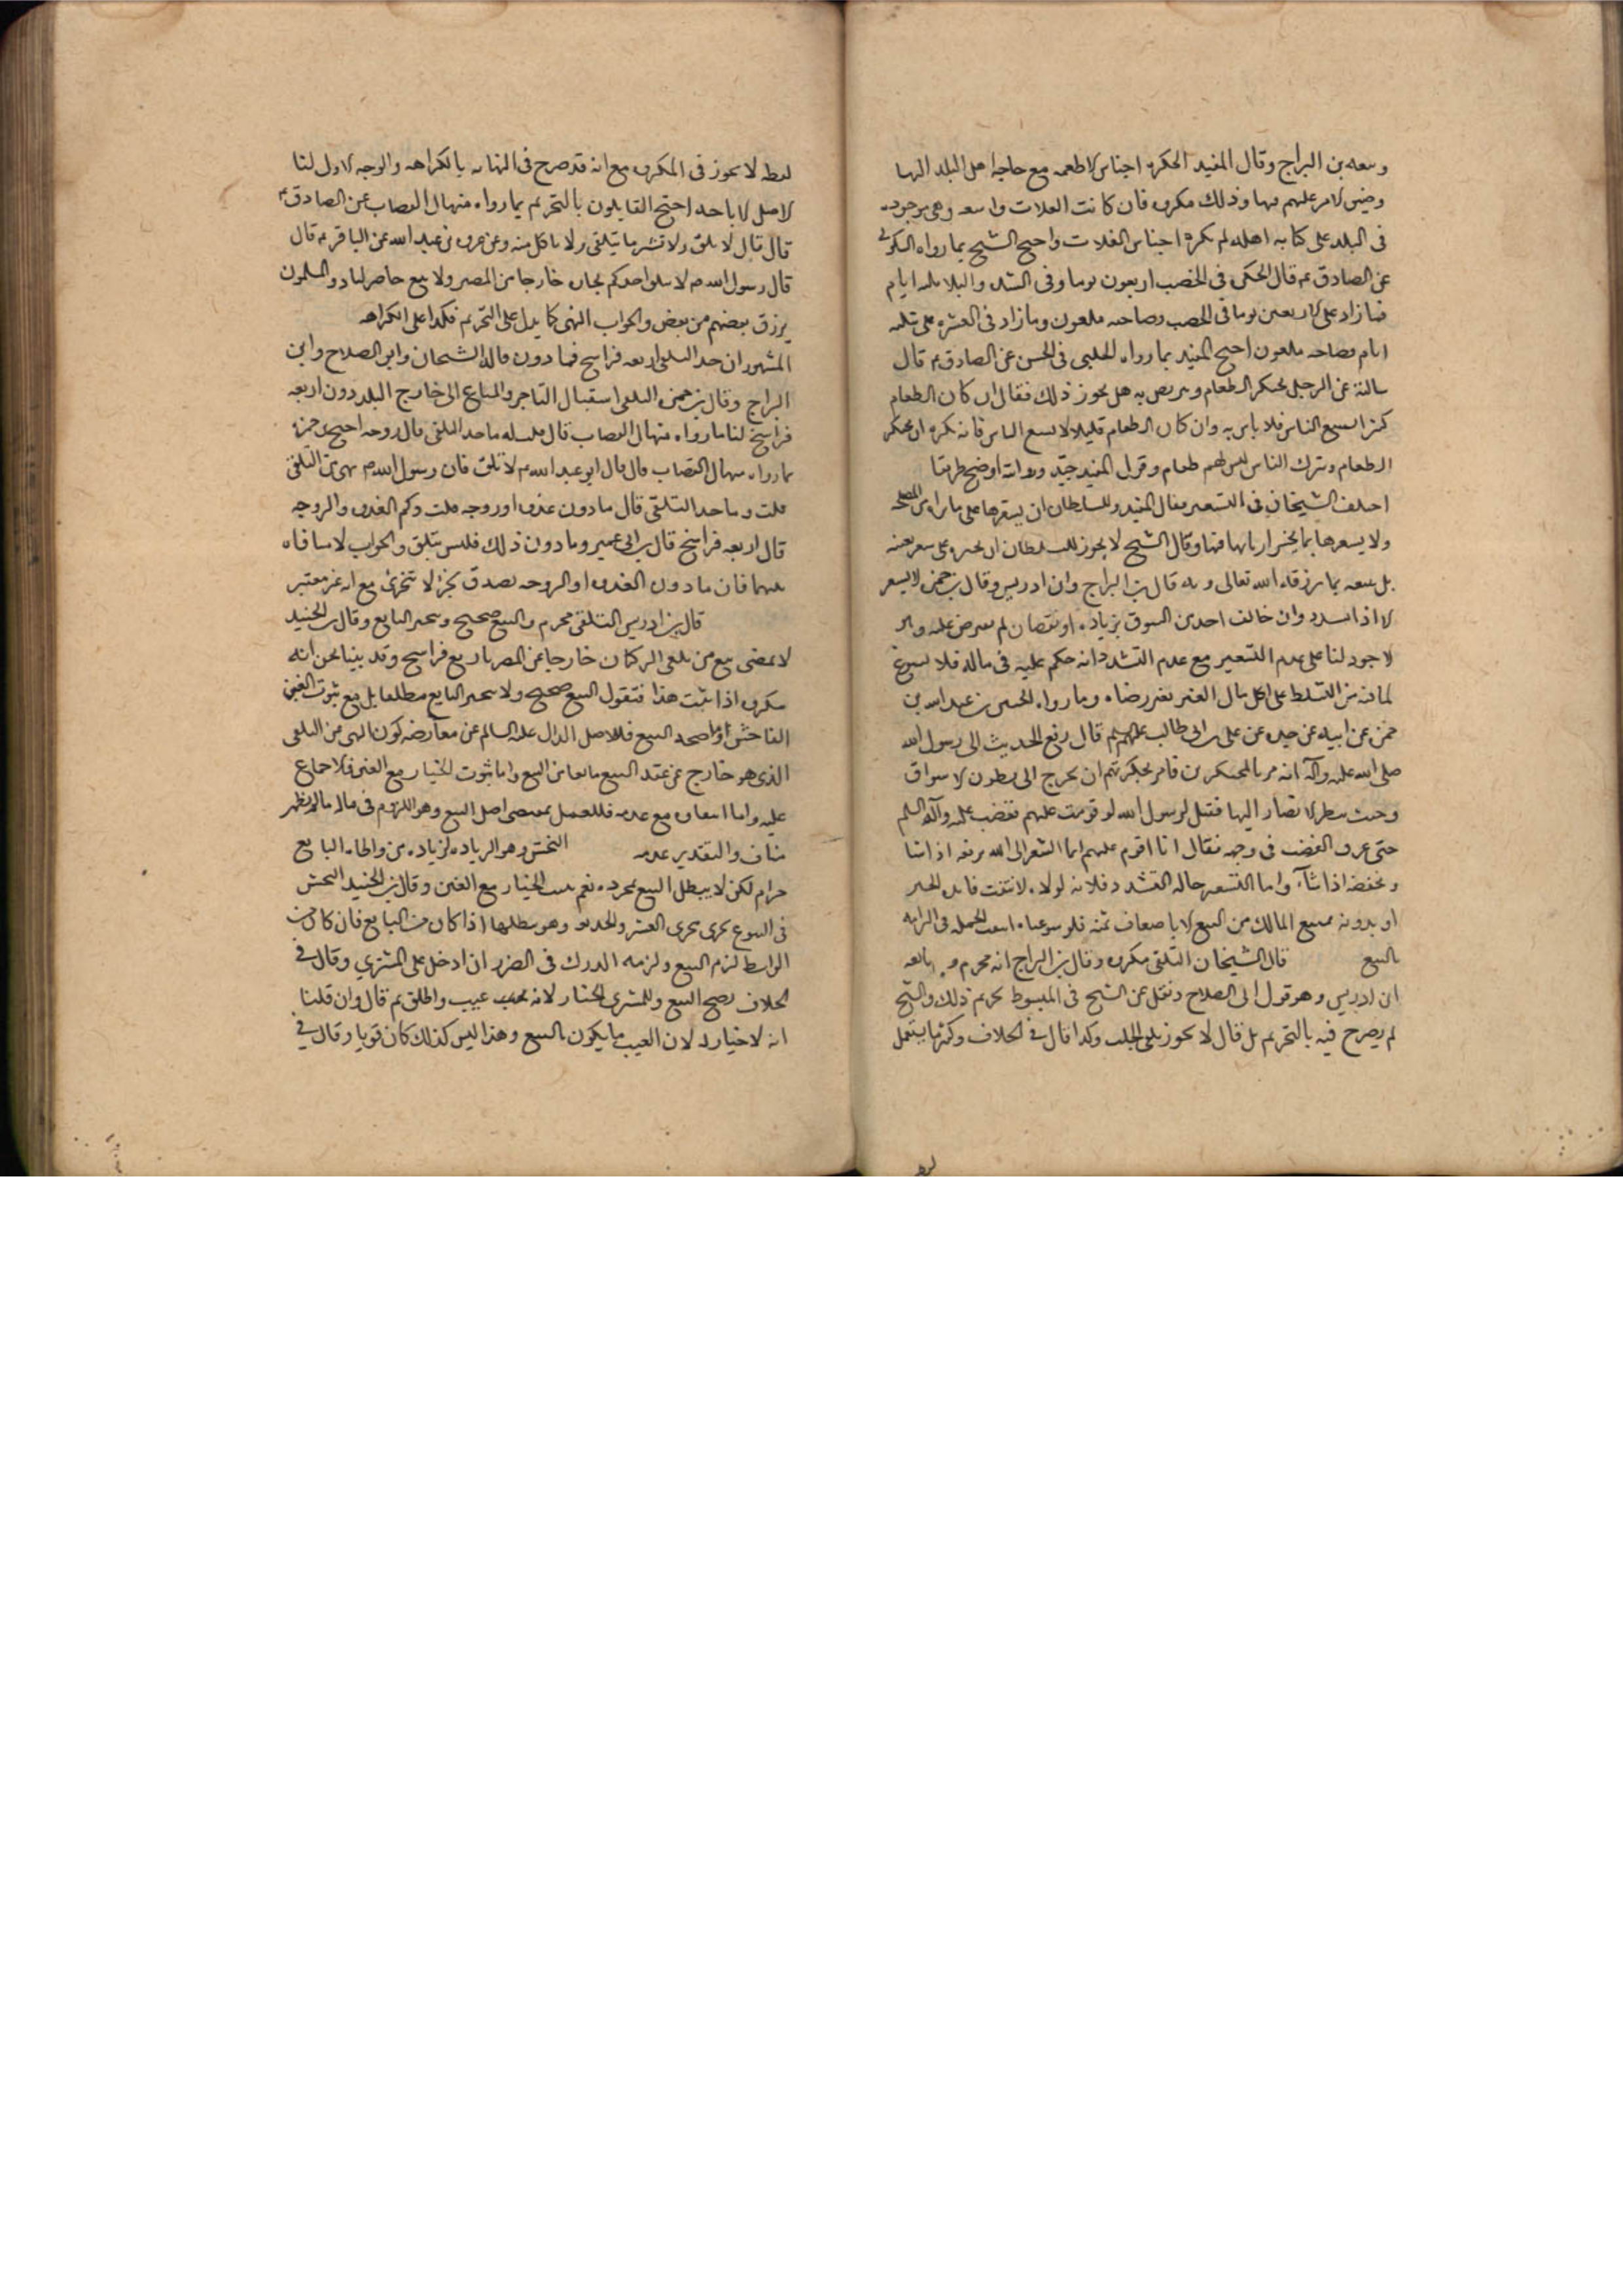 وتبعه بن البراج وقال المفيد الحكرة احتباس الاطعمه مع حاجه اهل البلد اليها
وضيق الامر عليهم فيها وذلك مكروه فان كانت الغلات واسعه وهي موجوده
فى البلد على كفايه اهله لم يكره احتباس الغلات واحتج الشيخ بما رواه السكوني
عن الصادق ع قال الحكره فى الخصب اربعون يوما وفى الشده والبلاء ثلثه ايام
فما زاد على الاربعين يوما فى الخصب فصاحبه ملعون وما زاد فى العشره على ثلثه
ايام فصاحبه ملعون احتج المفيد بما رواه الحلبي فى الحسن عن الصادق ع قال
سالته عن الرجل يحتكر الطعام ويتربص به هل يجوز ذلك فقال ان كان الطعام
كثيرا يسع الناس فلا باس به وان كان الطعام قليلا لا يسع الناس فانه يكره ان يحتكر
الطعام ويترك الناس ليس لهم طعام وقول المفيد جيّد وروايته اوضح طريقا
اختلف الشيخان فى التسعير فقال المفيد وللسلطان ان يسعّرها على ما يراه من المصلحه
ولا يسعرها بما يخسر اربابها فيها وقال الشيخ لا يجوز للسلطان ان يجبره على سعر بعينه
بل يبيعه بما يرزقه الله تعالى وبه قال بن البراج وابن ادريس وقال بن حمزه لا يسعر
الا اذا تشدد وان خالف احد من السوق بزياده او نقصان لم يعترض عليه وهو
الاجود لنا على عدم التسعير مع عدم التشدد انه حكم عليه فى ماله فلا يسوغ
لما فيه من التسلط على اكل مال الغير بغير رضاه وما رواه الحسين بن عبد الله بن
حمزه عن ابيه عن جده عن على بن ابى طالب عليهم السلم قال رفع الحديث الى رسول الله
صلى الله عليه وآله انه مر بالمحتكرين فامر بحكرتهم ان يخرج الى بطون الاسواق
وحيث ينظر الابصار اليها فقيل لرسول الله لو قومت عليهم فغضب عليه وآله السلم
حتى عرف الغضب فى وجهه فقال انا اقوم عليهم انما السعر الى الله يرفعه اذا شا
ويخفضه اذا شآء واما التسعير حاله التشدد فلانه لولاه لانتفت فايده الجبر
بالبيع قال الشيخان التلقى مكروه وقال بن البراج انه محرم
ابن ادريس وهو قول ابى الصلاح ونقل عن الشيخ فى المبسوط تحريم ذلك والشيخ
لم يصرح فيه بالتحريم بل قال لا يجوز تلقى الجلب وكذا قال فى الخلاف وكثيرا ما يستعمل
لفظ لا يجوز فى المكروه مع انه قد صرح فى النهايه بالكراهه والوجه الاول لنا
الاصل الاباحه احتج القايلون بالتحريم بما رواه منهال القصاب عن الصادق ع
قال قال لا تلق ولا تشتر ما يتلقى ولا تاكل منه وعن عروه بن عبد الله عن الباقر ع قال
قال رسول الله ص لا يتلق احدكم تجاره خارجا من المصر ولا يبيع حاضر لباد والمسلمون
يرزق بعضهم من بعض والجواب النهى كما يدل على التحريم فكذا على الكراهه
المشهور ان حد التلقى اربعه فراسخ فما دون قاله الشيخان وابو الصلاح وابن
البراج وقال بن حمزه التلقى استقبال التاجر والمتاع الى خارج البلد دون اربعه
فراسخ لنا ما رواه منهال القصاب قال قلت له ما حد التلقى قال روحه احتج بن حمزه
بما رواه منهال القصاب قال قال ابو عبد الله ع لا تلق فان رسول الله ص نهى عن التلقى
قلت وما حد التلقى قال ما دون غدوه او روحه قلت وكم الغدوه والروحه
قال اربعه فراسخ قال بن ابى عمير وما دون ذلك فليس بتلق والجواب لا منافاه
بينهما فان ما دون الغدوه او الروحه يصدق بجزء لا يتجزئ مع انه غير معتبر
قال بن ادريس التلقى محرم والبيع صحيح ويتخير البايع وقال بن الجنيد
لا يمضى بيع من تلقى الركبان خارجا عن المصر باربع فراسخ وقد بينا نحن انه
مكروه اذا ثبت هذا فنقول البيع صحيح ولا يتخير البايع مطلقا بل مع ثبوت الغبن
الفاحش اما صحه البيع فللاصل الدال عليه السالم عن معارضه كون النهى عن التلقى
الذى هو خارج عن عقد البيع مانعا من البيع واما ثبوت الخيار مع الغبن فلاجماع
عليه واما انتفاوه مع عدمه فللعمل بمقتضى اصل البيع وهو اللزوم فى ماله ما لم يظهر
مناف والتقدير عدمه النجش وهو الزياده لزياده من واطاه البايع
حرام لكن لا يبطل البيع بمجرده نعم يثبت الخيار مع الغبن وقال بن الجنيد النجش
فى البيوع يجرى مجرى الغش والخديعه وهو يبطلها اذا كان من البايع فان كان من
الواسط لزم البيع ولزمه الدرك فى الضرر ان ادخل على المشتري وقال في
الخلاف يصح البيع وللمشترى الخيار لانه عيب واطلق ثم قال وان قلنا
انه لا خيار له لان العيب ما يكون بالمبيع وهذا ليس كذلك كان قويا وقال في